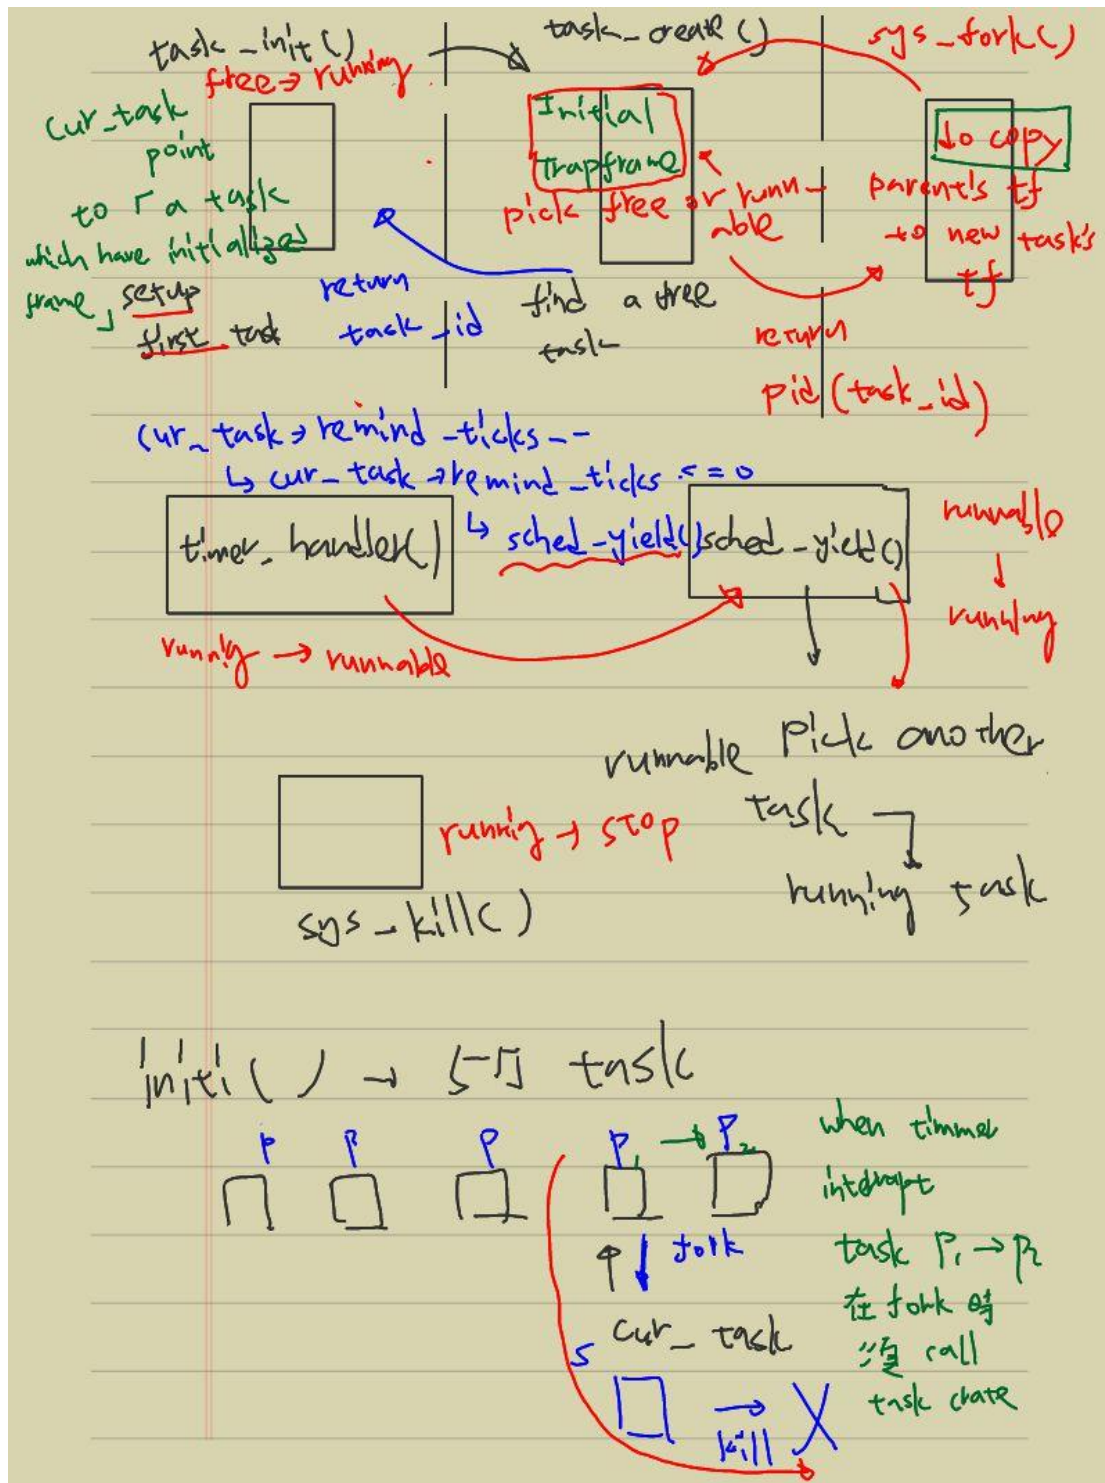 task_init()
free → running
cur_task
point
to a task
which have initialized
frame, setup
first task
return
task_id
task_create()
Initial
Trapframe
pick free or runn-
able
find a free
task
sys_fork()
to copy
parent's tf
to new task's
tf
return
pid (task_id)
cur_task → remind_ticks --
↳ cur_task → remind_ticks <= 0
↳ sched_yield()
timer_handler()
sched_yield()
runnig → runnable
runnable
↓
running
runnable pick another
task
running task
runnig → stop
sys_kill()
initi() → 5個 task
P P P P1 → P2
fork
cur_task
5
kill X
when timmer
interupt
task P1 → P2
在 fork 時
須 call
task crate